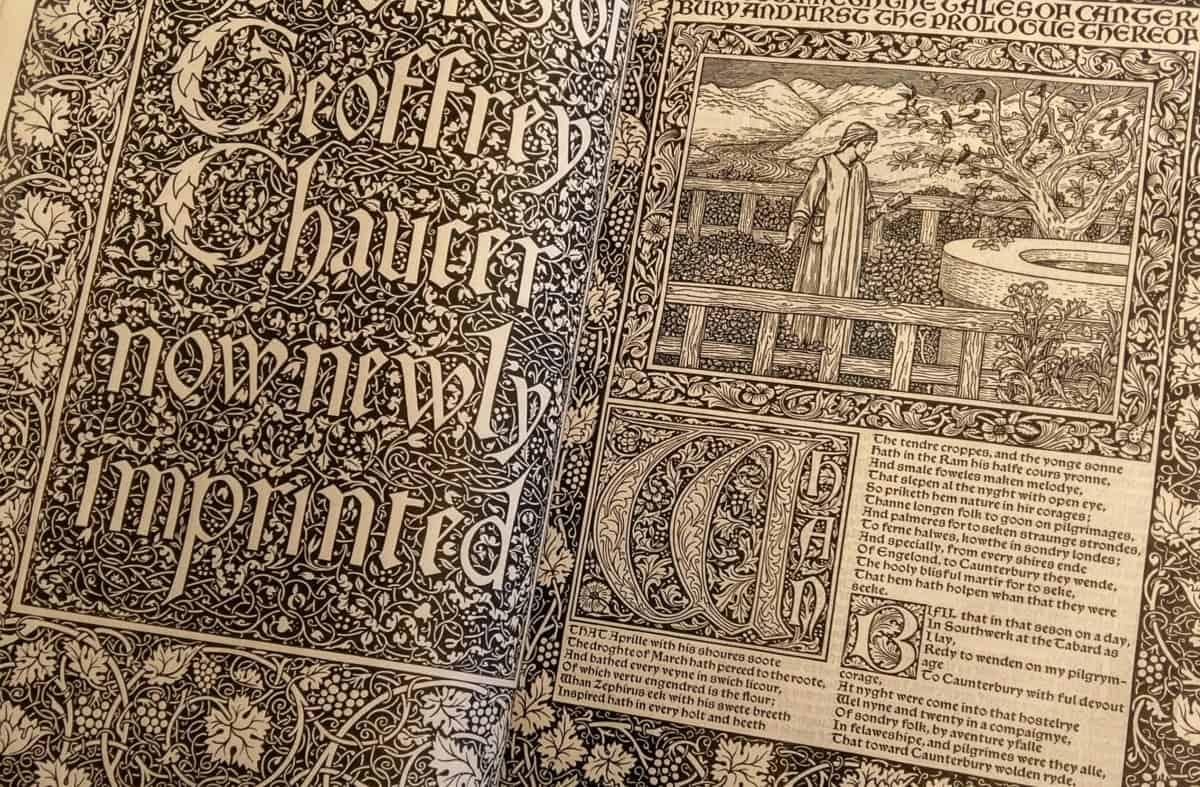 of
Geoffrey
Chaucer
now newly
imprinted
THE TALES OF CANTER
BURY AND FIRST THE PROLOGUE THEREOF
WHAN
THAT Aprille with his shoures soote
The droghte of March hath perced to the roote,
And bathed every veyne in swich licour,
Of which vertu engendred is the flour;
Whan Zephirus eek with his swete breeth
Inspired hath in every holt and heeth
The tendre croppes, and the yonge sonne
Hath in the Ram his halfe cours yronne,
And smale foweles maken melodye,
That slepen al the nyght with open eye,
So priketh hem nature in hir corages;
Thanne longen folk to goon on pilgrimages,
And palmeres for to seken straunge strondes,
To ferne halwes, kowthe in sondry londes;
And specially, from every shires ende
Of Engelond, to Caunterbury they wende,
The hooly blisful martir for to seke,
That hem hath holpen whan that they were
seeke.
BIFIL that in that seson on a day,
In Southwerk at the Tabard as
I lay,
Redy to wenden on my pilgrym-
age
To Caunterbury with ful devout
corage,
At nyght were come into that hostelrye
Wel nyne and twenty in a compaignye,
Of sondry folk, by aventure yfalle
In felaweshipe, and pilgrimes were they alle,
That toward Caunterbury wolden ryde.